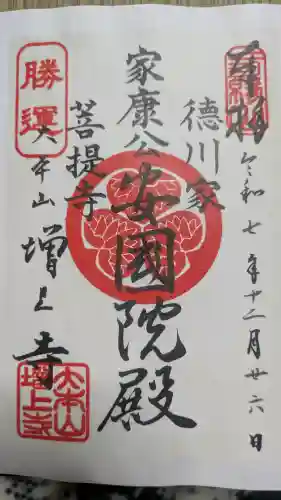 奉拝
令和七年十二月廿六日
徳川家
家康公
安國院殿
菩提寺
勝運
大本山
増上寺
大本山
増上寺